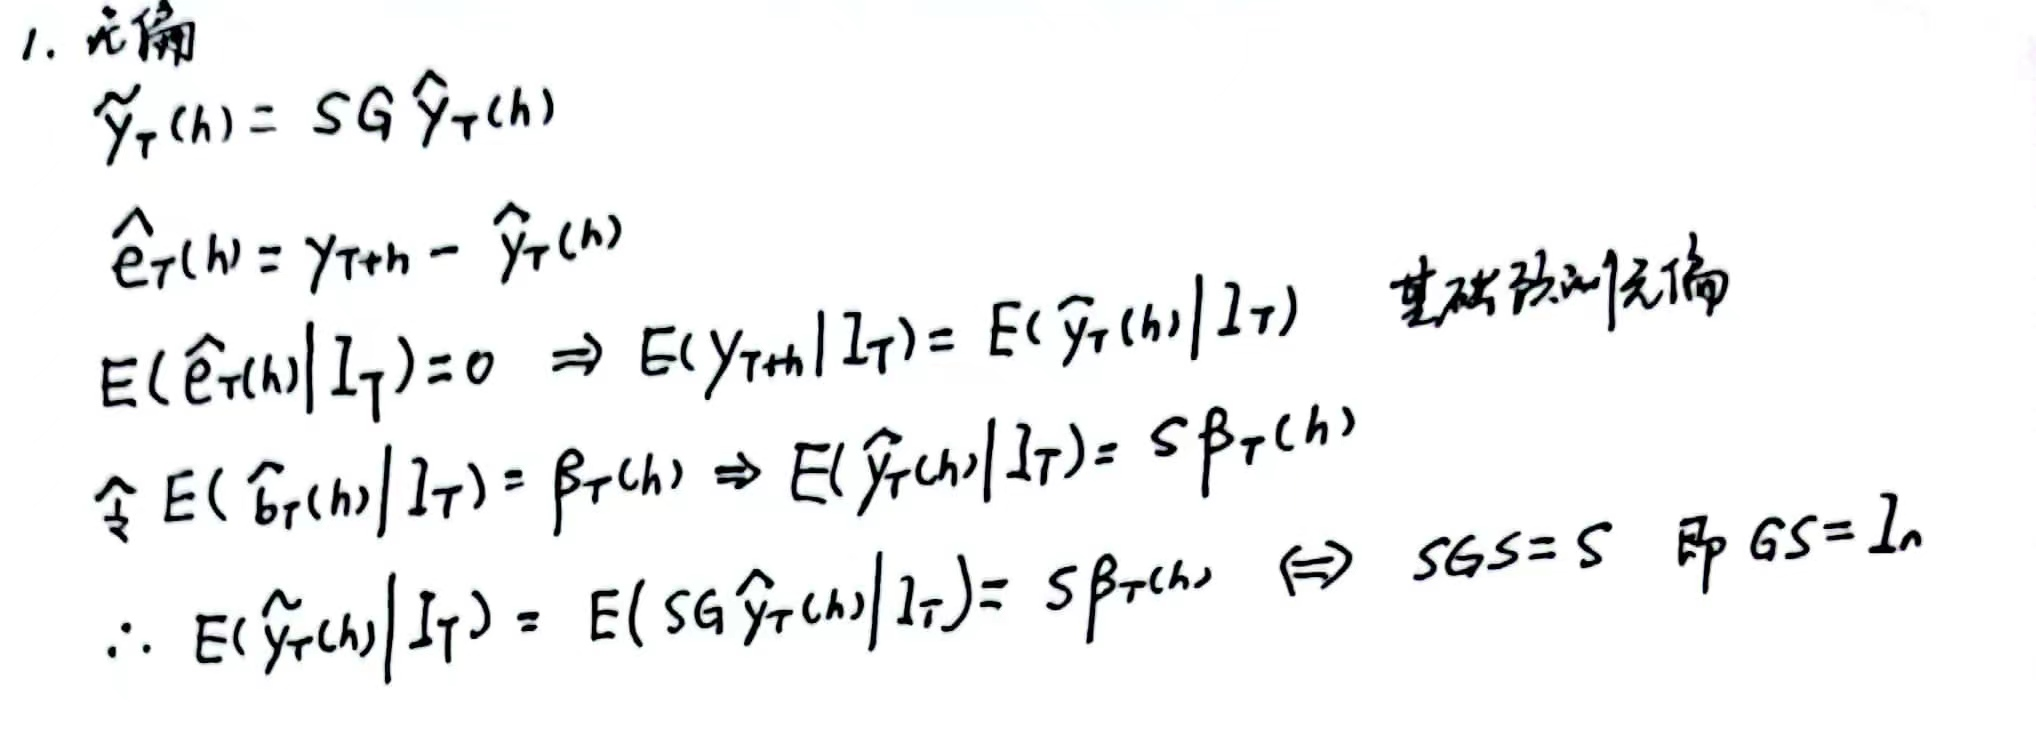 1. 无偏
ỹ_T(h) = SG ŷ_T(h)
ê_T(h) = y_{T+h} - ŷ_T(h)
E(ê_T(h)|I_T)=0 ⇒ E(y_{T+h}|I_T) = E(ŷ_T(h)|I_T) 基础预测无偏
令 E(b̂_T(h)|I_T) = β_T(h) ⇒ E(ŷ_T(h)|I_T) = Sβ_T(h)
∴ E(ỹ_T(h)|I_T) = E(SGŷ_T(h)|I_T) = Sβ_T(h) ⇔ SGS=S 即 GS=I_n